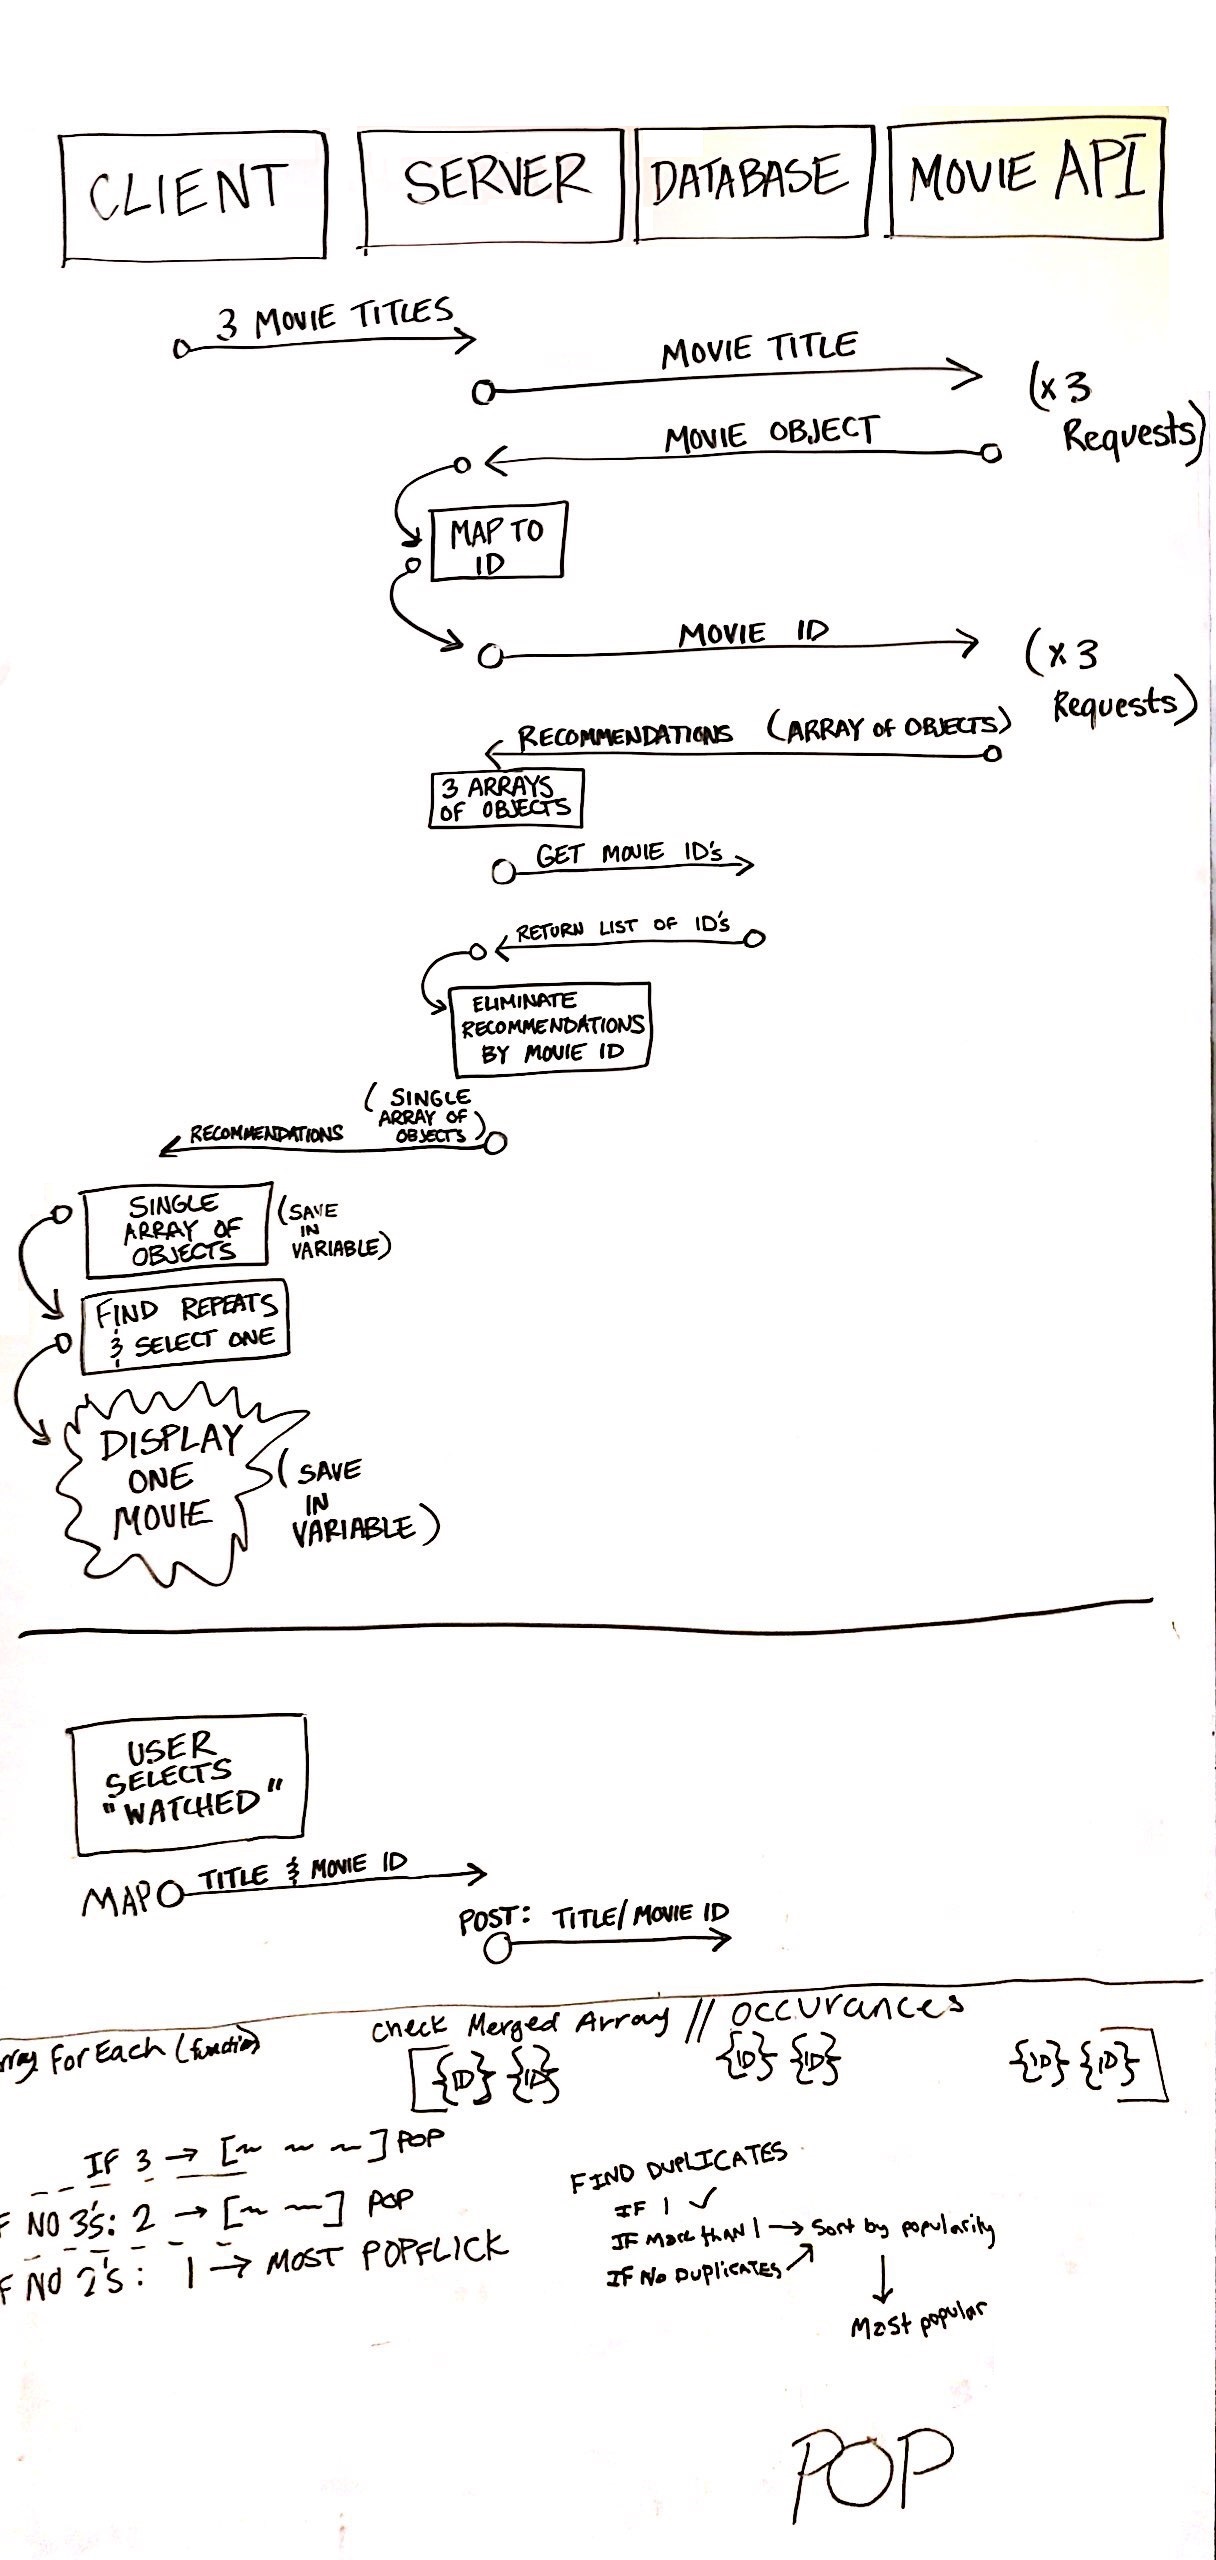 CLIENT
SERVER
DATABASE
MOVIE API
3 MOVIE TITLES
MOVIE TITLE
(x 3
Requests)
MOVIE OBJECT
MAP TO
ID
MOVIE ID
(x 3
Requests)
RECOMMENDATIONS (ARRAY OF OBJECTS)
3 ARRAYS
OF OBJECTS
GET MOVIE ID's
RETURN LIST OF ID's
ELIMINATE
RECOMMENDATIONS
BY MOVIE ID
(SINGLE
ARRAY OF
OBJECTS)
RECOMMENDATIONS
SINGLE
ARRAY OF
OBJECTS
(SAVE
IN
VARIABLE)
FIND REPEATS
& SELECT ONE
DISPLAY
ONE
MOVIE
(SAVE
IN
VARIABLE)
USER
SELECTS
"WATCHED"
MAP
TITLE & MOVIE ID
POST: TITLE/MOVIE ID
check Merged Array // occurances
rray ForEach (function)
[{ID} {ID} {ID} {ID} {ID} {ID}]
IF 3 → [~ ~ ~] POP
F NO 3's: 2 → [~ ~] POP
F NO 2's: 1 → MOST POPFLICK
FIND DUPLICATES
IF 1 ✓
IF More than 1 → Sort by popularity
IF No Duplicates
Most popular
POP